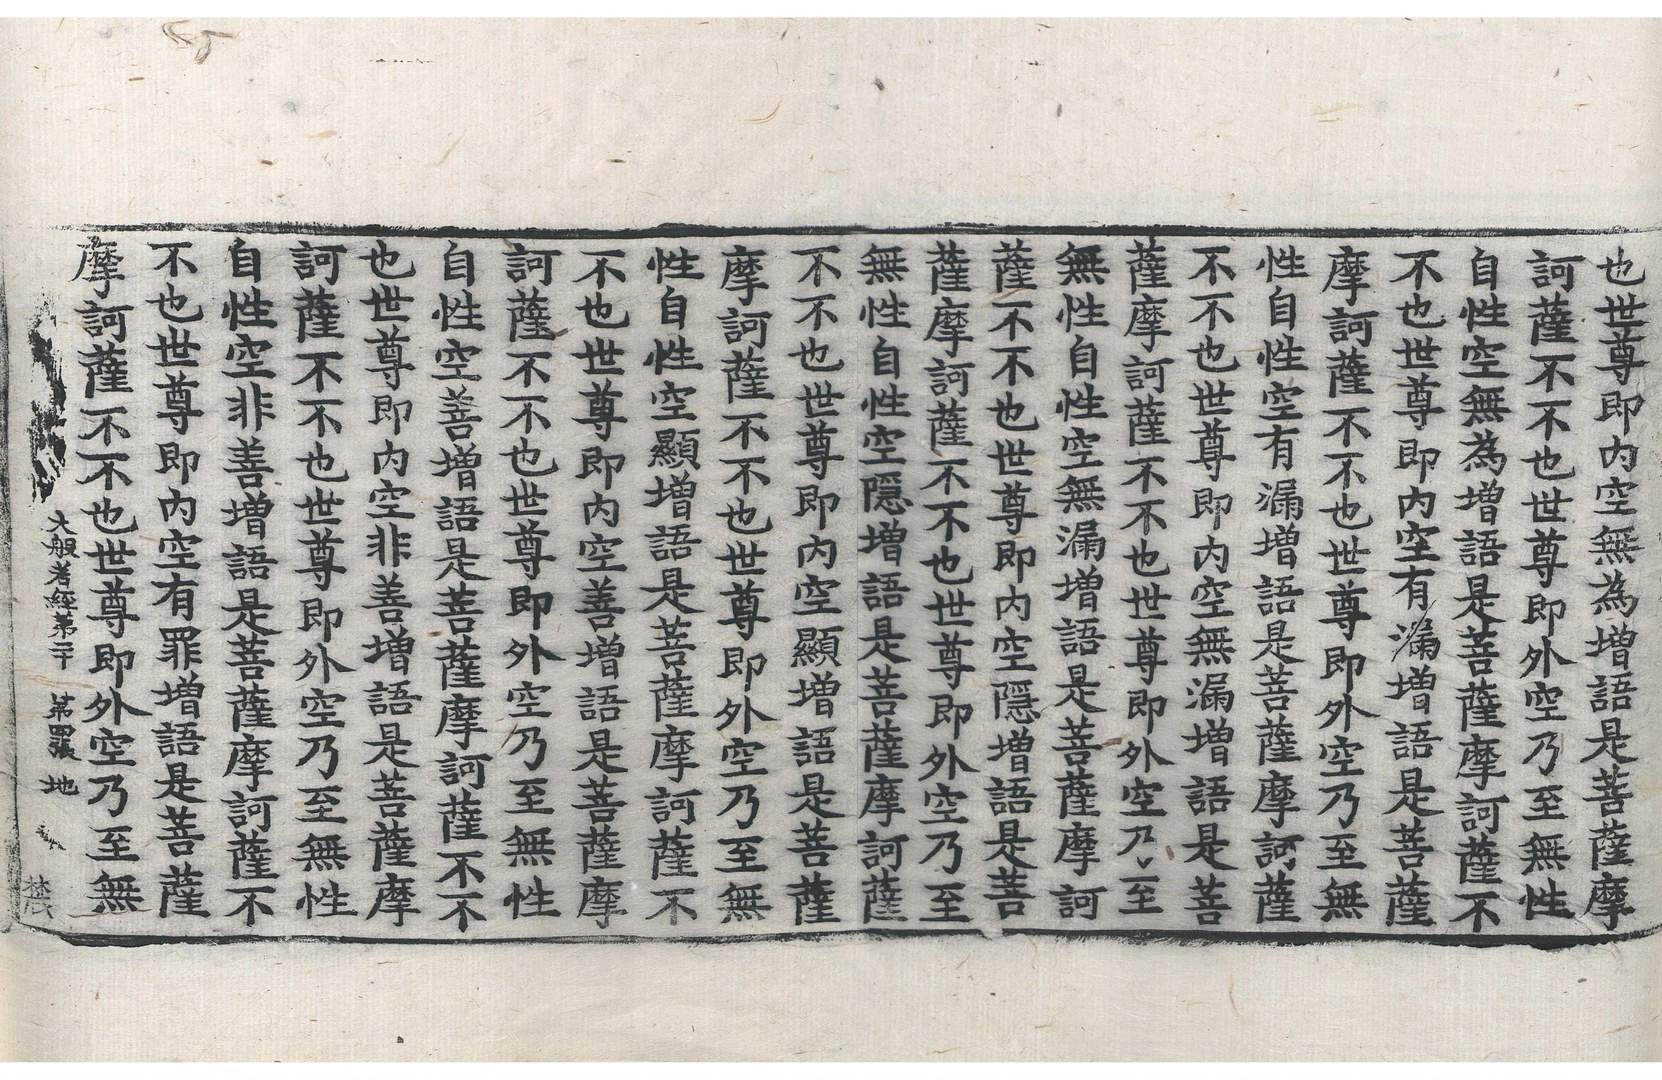 也世尊即内空無為增語是菩薩摩
訶薩不不也世尊即外空乃至無性
自性空無為增語是菩薩摩訶薩不
不也世尊即内空有漏增語是菩薩
摩訶薩不不也世尊即外空乃至無
性自性空有漏增語是菩薩摩訶薩
不不也世尊即内空無漏增語是菩
薩摩訶薩不不也世尊即外空乃至
無性自性空無漏增語是菩薩摩訶
薩不不也世尊即内空隱增語是菩
薩摩訶薩不不也世尊即外空乃至
無性自性空隱增語是菩薩摩訶薩
不不也世尊即内空顯增語是菩薩
摩訶薩不不也世尊即外空乃至無
性自性空顯增語是菩薩摩訶薩不
不也世尊即内空善增語是菩薩摩
訶薩不不也世尊即外空乃至無性
自性空善增語是菩薩摩訶薩不不
也世尊即内空非善增語是菩薩摩
訶薩不不也世尊即外空乃至無性
自性空非善增語是菩薩摩訶薩不
不也世尊即内空有罪增語是菩薩
摩訶薩不不也世尊即外空乃至無
大般若經第二十 第四張 地